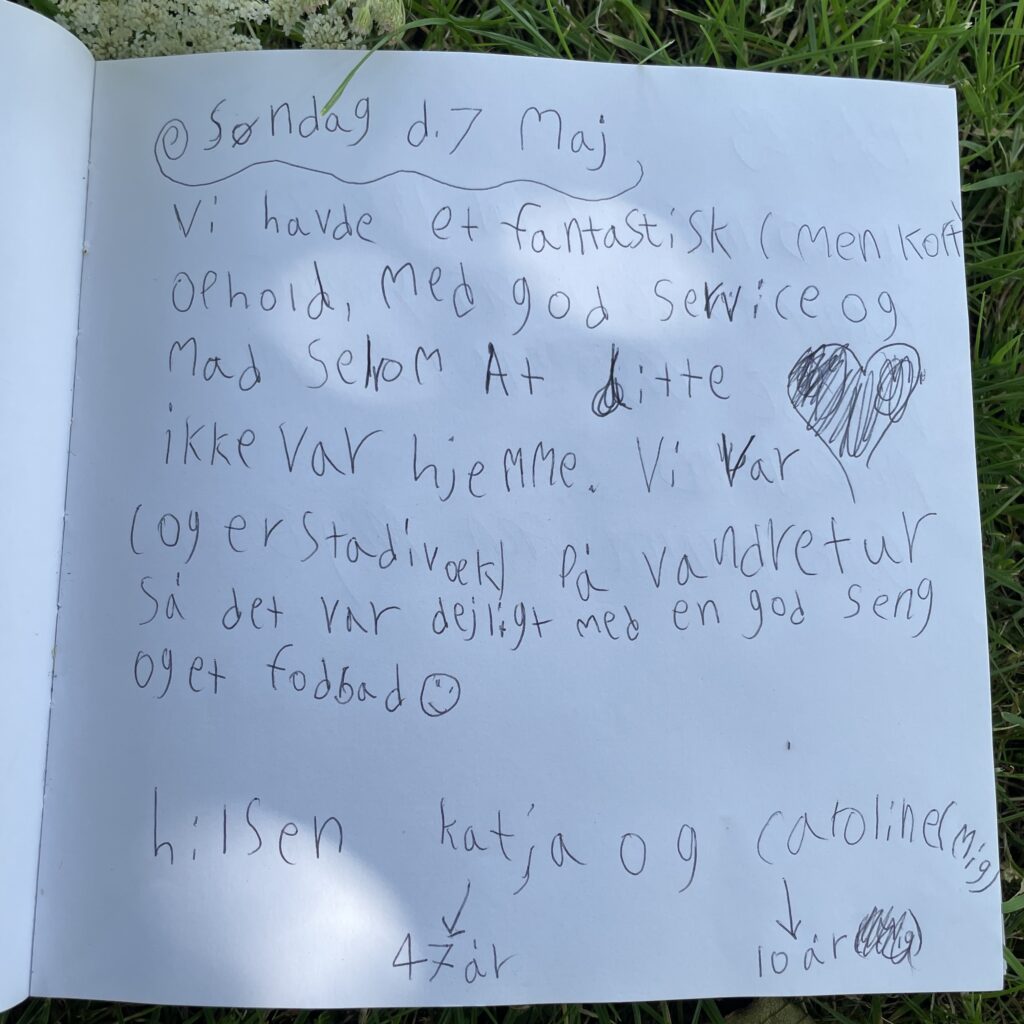 Søndag d.7 Maj
Vi havde et fantastisk (men kort)
ophold, med god service og
mad selvom At ditte
ikke var hjemme. Vi var
(og er stadivæk) på vandretur
så det var dejligt med en god seng
og et fodbad
hilsen katja og caroline(mig)
47 år 10 år